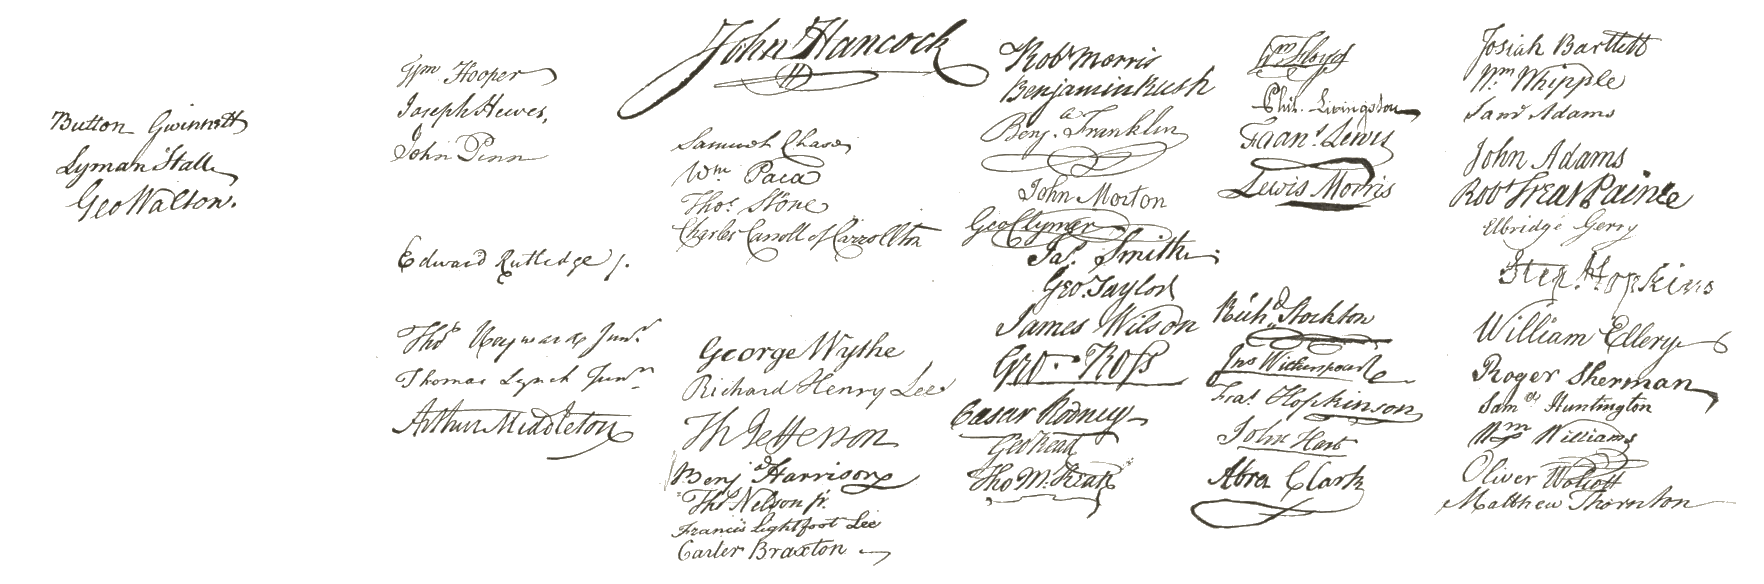 Button Gwinnett
Lyman Hall
Geo Walton.
Wm Hooper
Joseph Hewes,
John Penn
Edward Rutledge /.
Thos Heyward Junr.
Thomas Lynch Junr.
Arthur Middleton
John Hancock
Samuel Chase
Wm. Paca
Thos. Stone
Charles Carroll of Carrollton
George Wythe
Richard Henry Lee
Th Jefferson
Benj Harrison
Thos Nelson jr.
Francis Lightfoot Lee
Carter Braxton
Robt Morris
Benjamin Rush
Benja. Franklin
John Morton
Geo Clymer
Jas. Smith
Geo. Taylor
James Wilson
Geo. Ross
Caesar Rodney
Geo Read
Tho M:Kean
Wm. Floyd
Phil. Livingston
Frans. Lewis
Lewis Morris
Richd. Stockton
Jno Witherspoon
Fras. Hopkinson
John Hart
Abra Clark
Josiah Bartlett
Wm. Whipple
Saml Adams
John Adams
Robt Treat Paine
Elbridge Gerry
Step. Hopkins
William Ellery
Roger Sherman
Saml Huntington
Wm Williams
Oliver Wolcott
Matthew Thornton